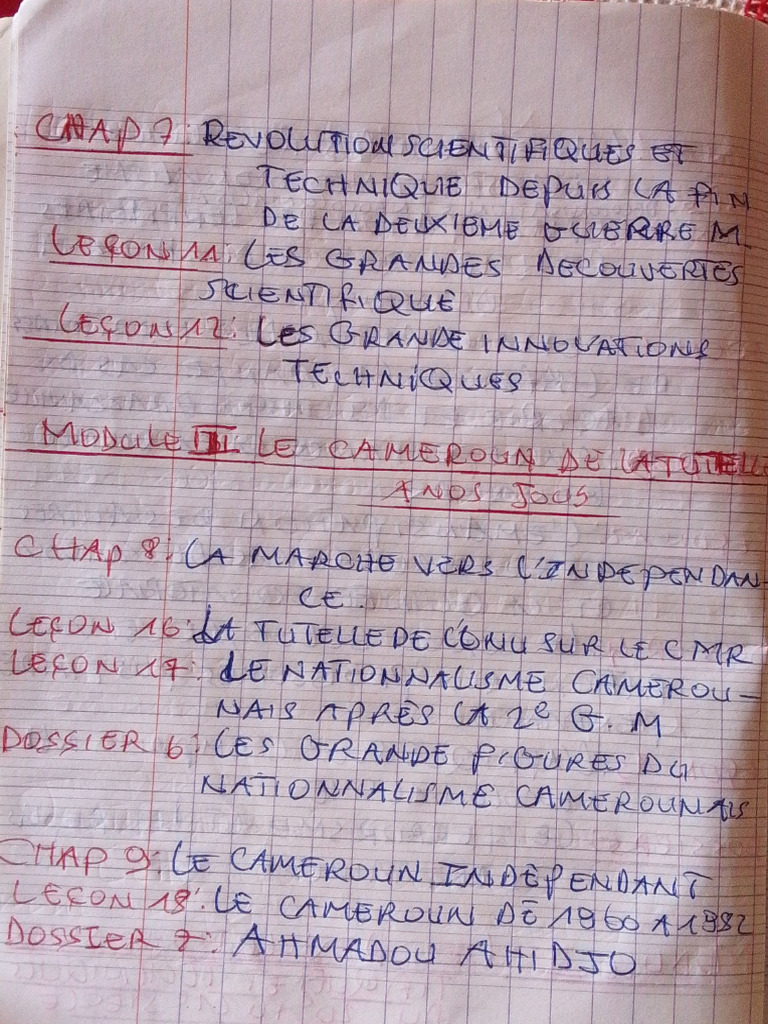 CHAP 7: REVOLUTION SCIENTIFIQUES ET
TECHNIQUE DEPUIS LA FIN
DE LA DEUXIEME GUERRE M
LEÇON 11: LES GRANDES DECOUVERTES
SCIENTIFIQUE
LEÇON 12: LES GRANDE INNOVATIONS
TECHNIQUES
MODULE III LE CAMEROUN DE LA TUTELLE
A NOS JOUS
CHAP 8: LA MARCHE VERS L'INDEPENDAN-
CE.
LEÇON 16: LA TUTELLE DE L'ONU SUR LE CMR
LEÇON 17: LE NATIONNALISME CAMEROU-
NAIS APRÈS LA 2e G.M
DOSSIER 6: LES GRANDE FIGURES DU
NATIONNALISME CAMEROUNAIS
CHAP 9: LE CAMEROUN INDEPENDANT
LEÇON 18: LE CAMEROUN DE 1960 A 1982
DOSSIER 7: AHMADOU AHIDJO